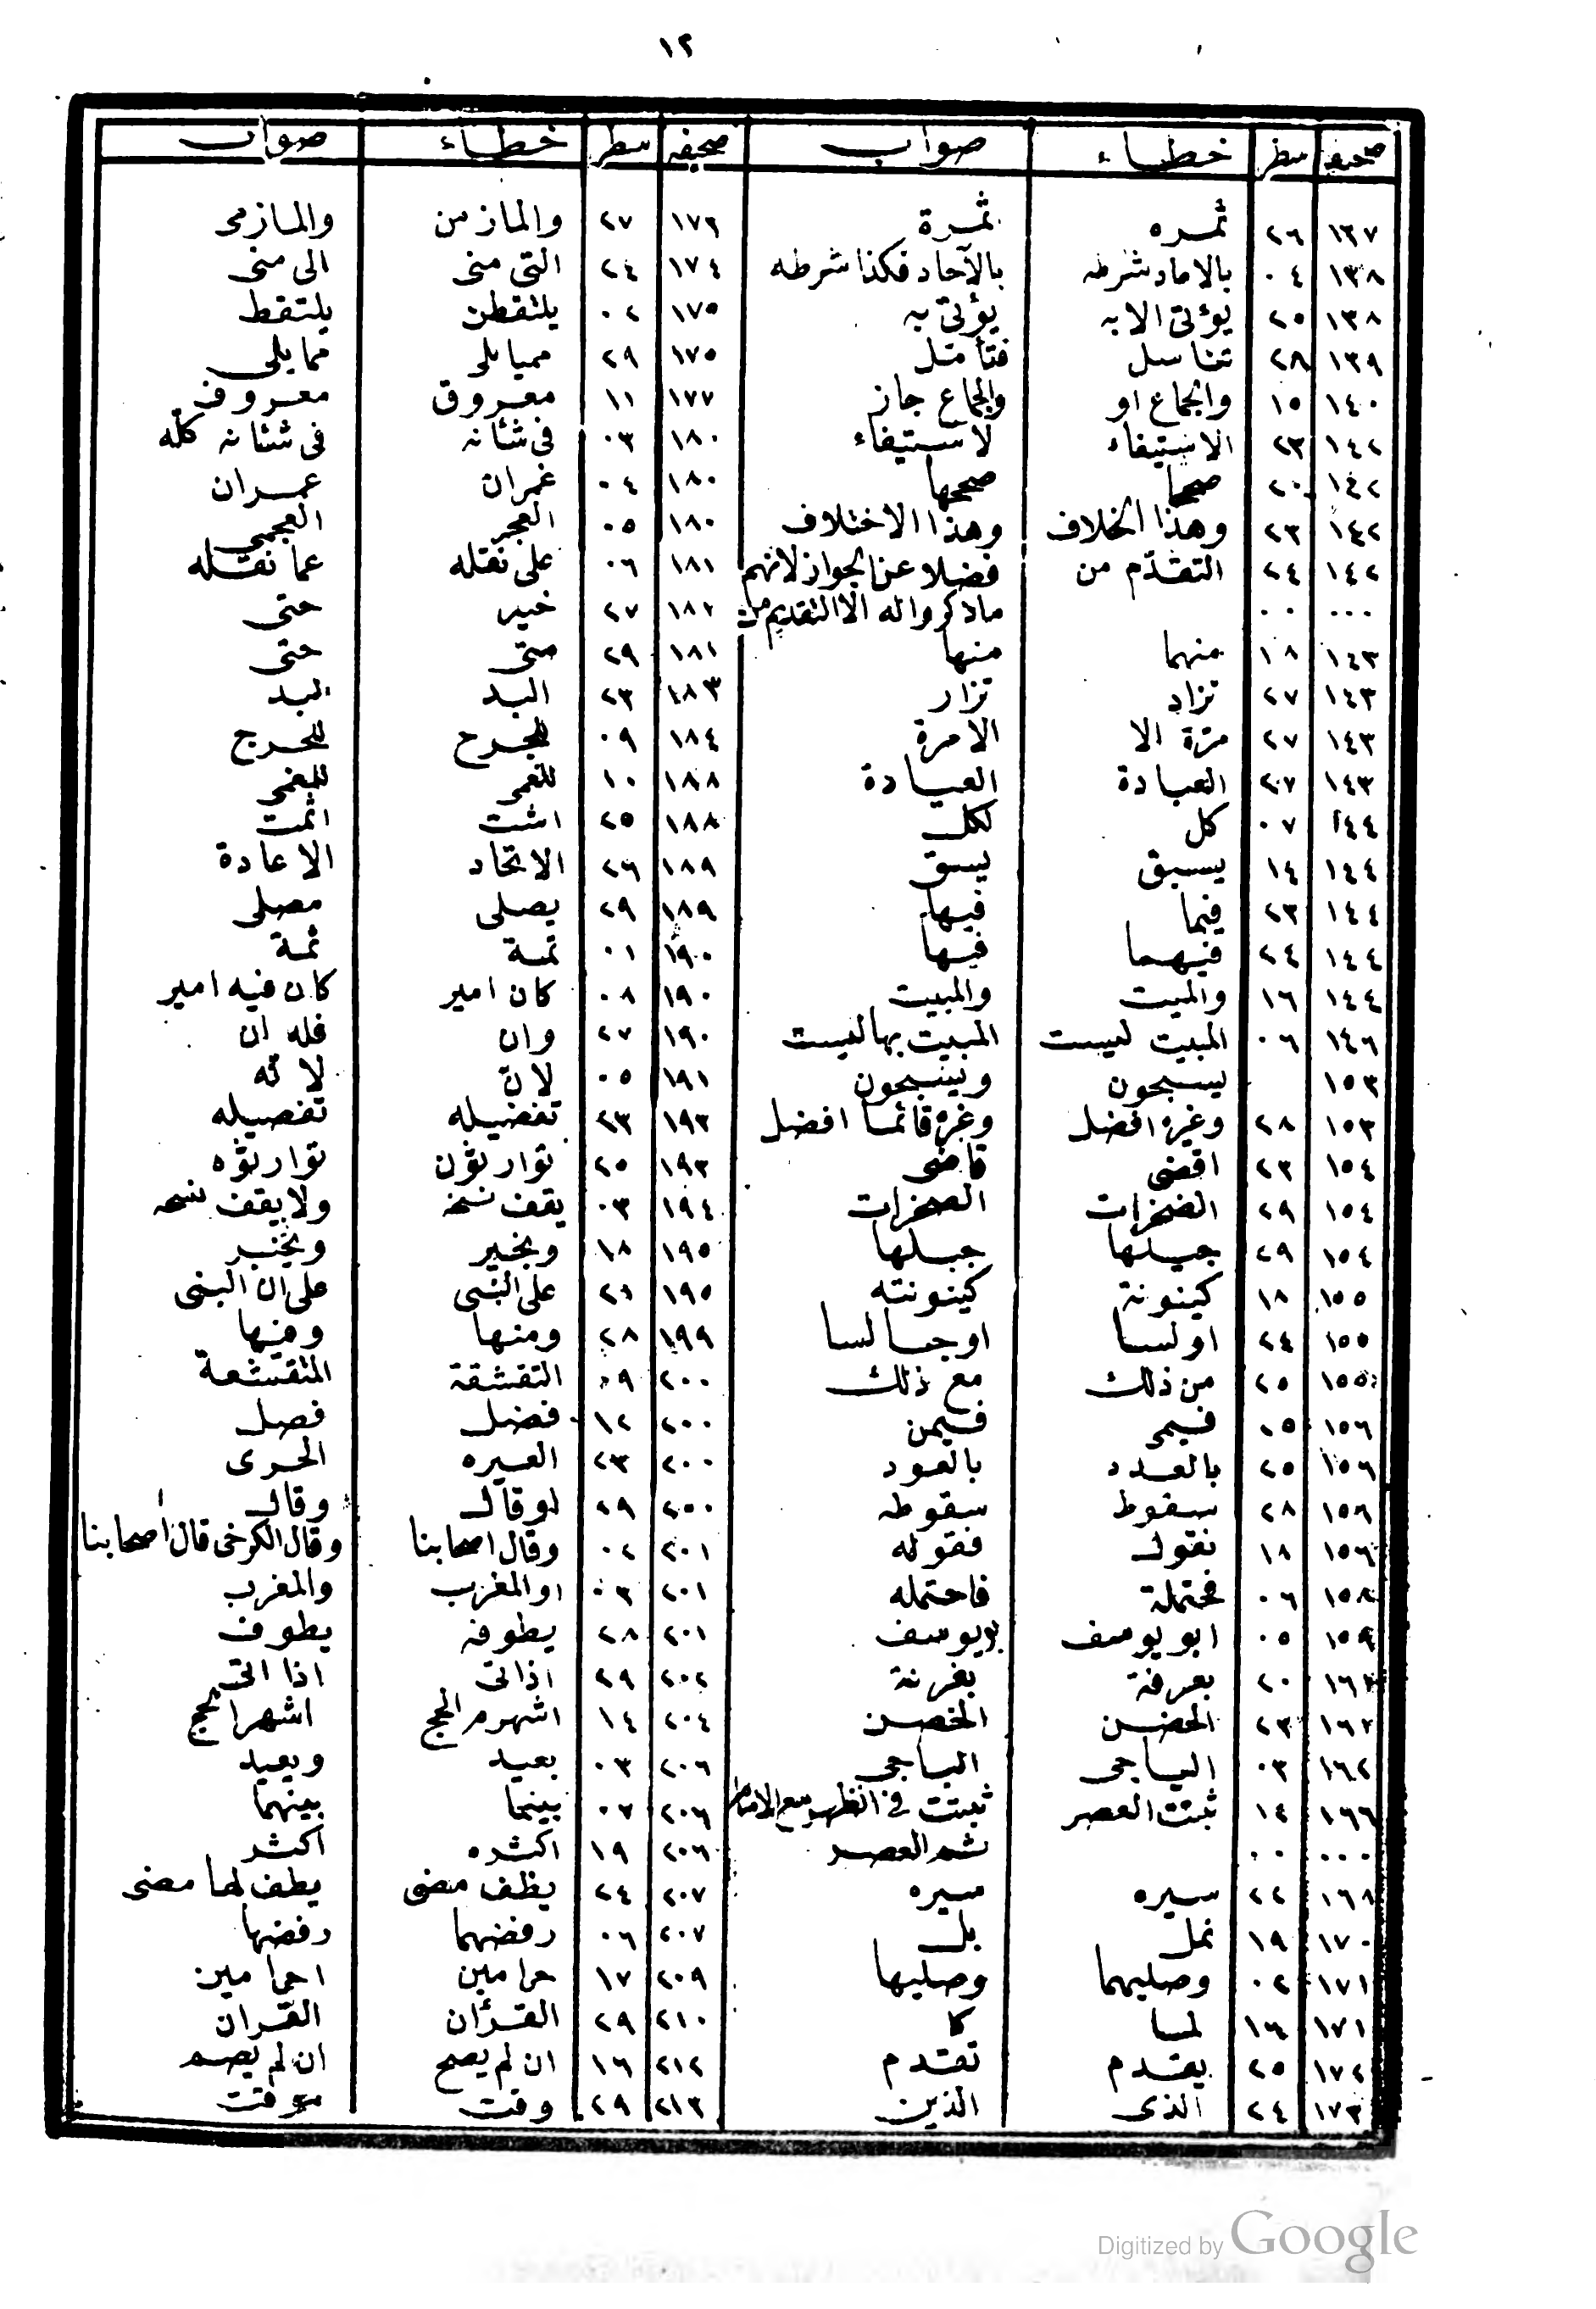 ١٢
صحيفه سطر خطاء صواب صحيفه سطر خطاء صواب
١٣٧ ٢٦ ثمره ثمرة ١٧٣ ٢٧ والمازمن والمازمى
١٣٨ ٠٤ بالاماد شرطه بالآحاد فكذا شرطه ١٧٤ ٢٤ التى منى الى منى
١٣٨ ٢٥ يؤتى الابه يؤتى به ١٧٥ ٠٢ يلتقطن يلتقط
١٣٩ ٢٨ تناسل فتأمل ١٧٥ ٢٩ ممايلى مما يلى
١٤٠ ١٥ والجماع او والجماع جاز ١٧٧ ١١ معروق معروف
١٤٢ ٢٣ الاستيفاء لاستيفاء ١٨٠ ٠٣ فى شئانه فى شئانه كله
١٤٢ ٢٠ صححا صححها ١٨٠ ٠٤ غمران عمران
١٤٢ ٢٣ وهذا الخلاف وهذا الاختلاف ١٨٠ ٠٥ العجر العجمى
١٤٢ ٢٤ التقدّم من فضلا عن الجواز لانهم ١٨١ ٠٦ على نقله عما نقله
٠٠٠ ٠٠ ماذكرواله الا التقديم من ١٨٢ ٢٧ خير حتى
١٤٣ ١٨ منهما منها ١٨١ ٢٩ متى حتى
١٤٣ ٢٧ تزاد تزار ١٨٣ ٢٣ البد لبد
١٤٣ ٢٧ مرّة الا الامرة ١٨٤ ٠٩ للجرح للحرج
١٤٣ ٢٧ العبادة العيادة ١٨٨ ١٠ للعمى للغمى
١٤٤ ٠٧ كل لكل ١٨٨ ٢٥ اشت اثمت
١٤٤ ١٤ يسبق يسق ١٨٩ ٢٦ الاتحاد الاعادة
١٤٤ ٢٣ فيما فيها ١٨٩ ٢٩ يصلى مصلى
١٤٤ ٢٤ فيهما فيها ١٩٠ ٠١ تمة ثمة
١٤٤ ١٦ والميت والمبيت ١٩٠ ٠٨ كان امير كان فيه امير
١٤٦ ٠٦ المبيت ليست المبيت بها ليست ١٩٠ ٢٧ وان فله ان
١٥٣ يسبحون ويسبحون ١٩١ ٠٥ لان لانه
١٥٣ ٢٨ وغيره افضل وغره قائما افضل ١٩٣ ٢٣ تفضيله تفصيله
١٥٤ ٢٣ اقضى قاضى ١٩٣ ٢٥ توارثون توارثوه
١٥٤ ٢٩ الضخرات الصخرات ١٩٤ ٠٣ يقف نسخة ولا يقف نسخه
١٥٤ ٢٩ جيلها جبلها ١٩٥ ١٨ وبخير ويخير
١٥٥ ١٨ كينونة كينونته ١٩٥ ٢١ على النبى على ان النبى
١٥٥ ٢٤ اولسا اوجالسا ١٩٩ ٢٨ ومنها ومنها
١٥٥ ٢٥ من ذلك مع ذلك ٢٠٠ ٠٩ التقشقة المتقشعة
١٥٦ ٠٥ فيمى فيمن ٢٠٠ ١٢ فضل فصل
١٥٦ ٢٥ بالعدد بالعود ٢٠٠ ٢٣ الغيره الحرى
١٥٦ ٢٨ سقوط سقوطه ٢٠٠ ٢٩ لو قال وقال
١٥٦ ١٨ نقول فقوله ٢٠١ ٠٢ وقال اصحابنا وقال الكرخى قال اصحابنا
١٥٨ ٠٦ محتملة فاحتمله ٢٠١ ٠٣ او المغرب والمغرب
١٥٩ ٠٥ ابو يوسف بويوسف ٢٠١ ٢٨ يطوفه يطوف
١٦٢ ٢٠ بعرفة بعرنة ٢٠٢ ٢٩ اذاتى اذا اتى
١٦٢ ٢٣ الحضن الحصن ٢٠٤ ١٤ اشهرم الحج اشهر الحج
١٦٢ ٠٣ الياجى الباجى ٢٠٦ ٠٣ بعيد ويعيد
١٦٦ ١٤ ثبتت العصر ثبتت فى الظهر مع الامام ٢٠٦ ٠٢ بينما بينهما
٠٠٠ ٠٠ ثم العصر ٢٠٦ ١٩ اكثره اكثر
١٦٨ ٢٢ سيره سيره ٢٠٧ ٢٤ يظف مضى يطف لما مضى
١٧٠ ١٩ نمل بل ٢٠٧ ٠٦ رفضهما رفضها
١٧١ ٠٢ وصليهما وصليها ٢٠٩ ١٧ حرامين احرامين
١٧١ ١٤ لما كا ٢١٠ ٢٩ القرأن القران
١٧٢ ٢٥ يقدم تقدم ٢١٢ ١٦ ان لم يصح ان لم يصم
١٧٣ ٢٤ الذى الذين ٢١٣ ٢٩ وقت موقت
Digitized by Google